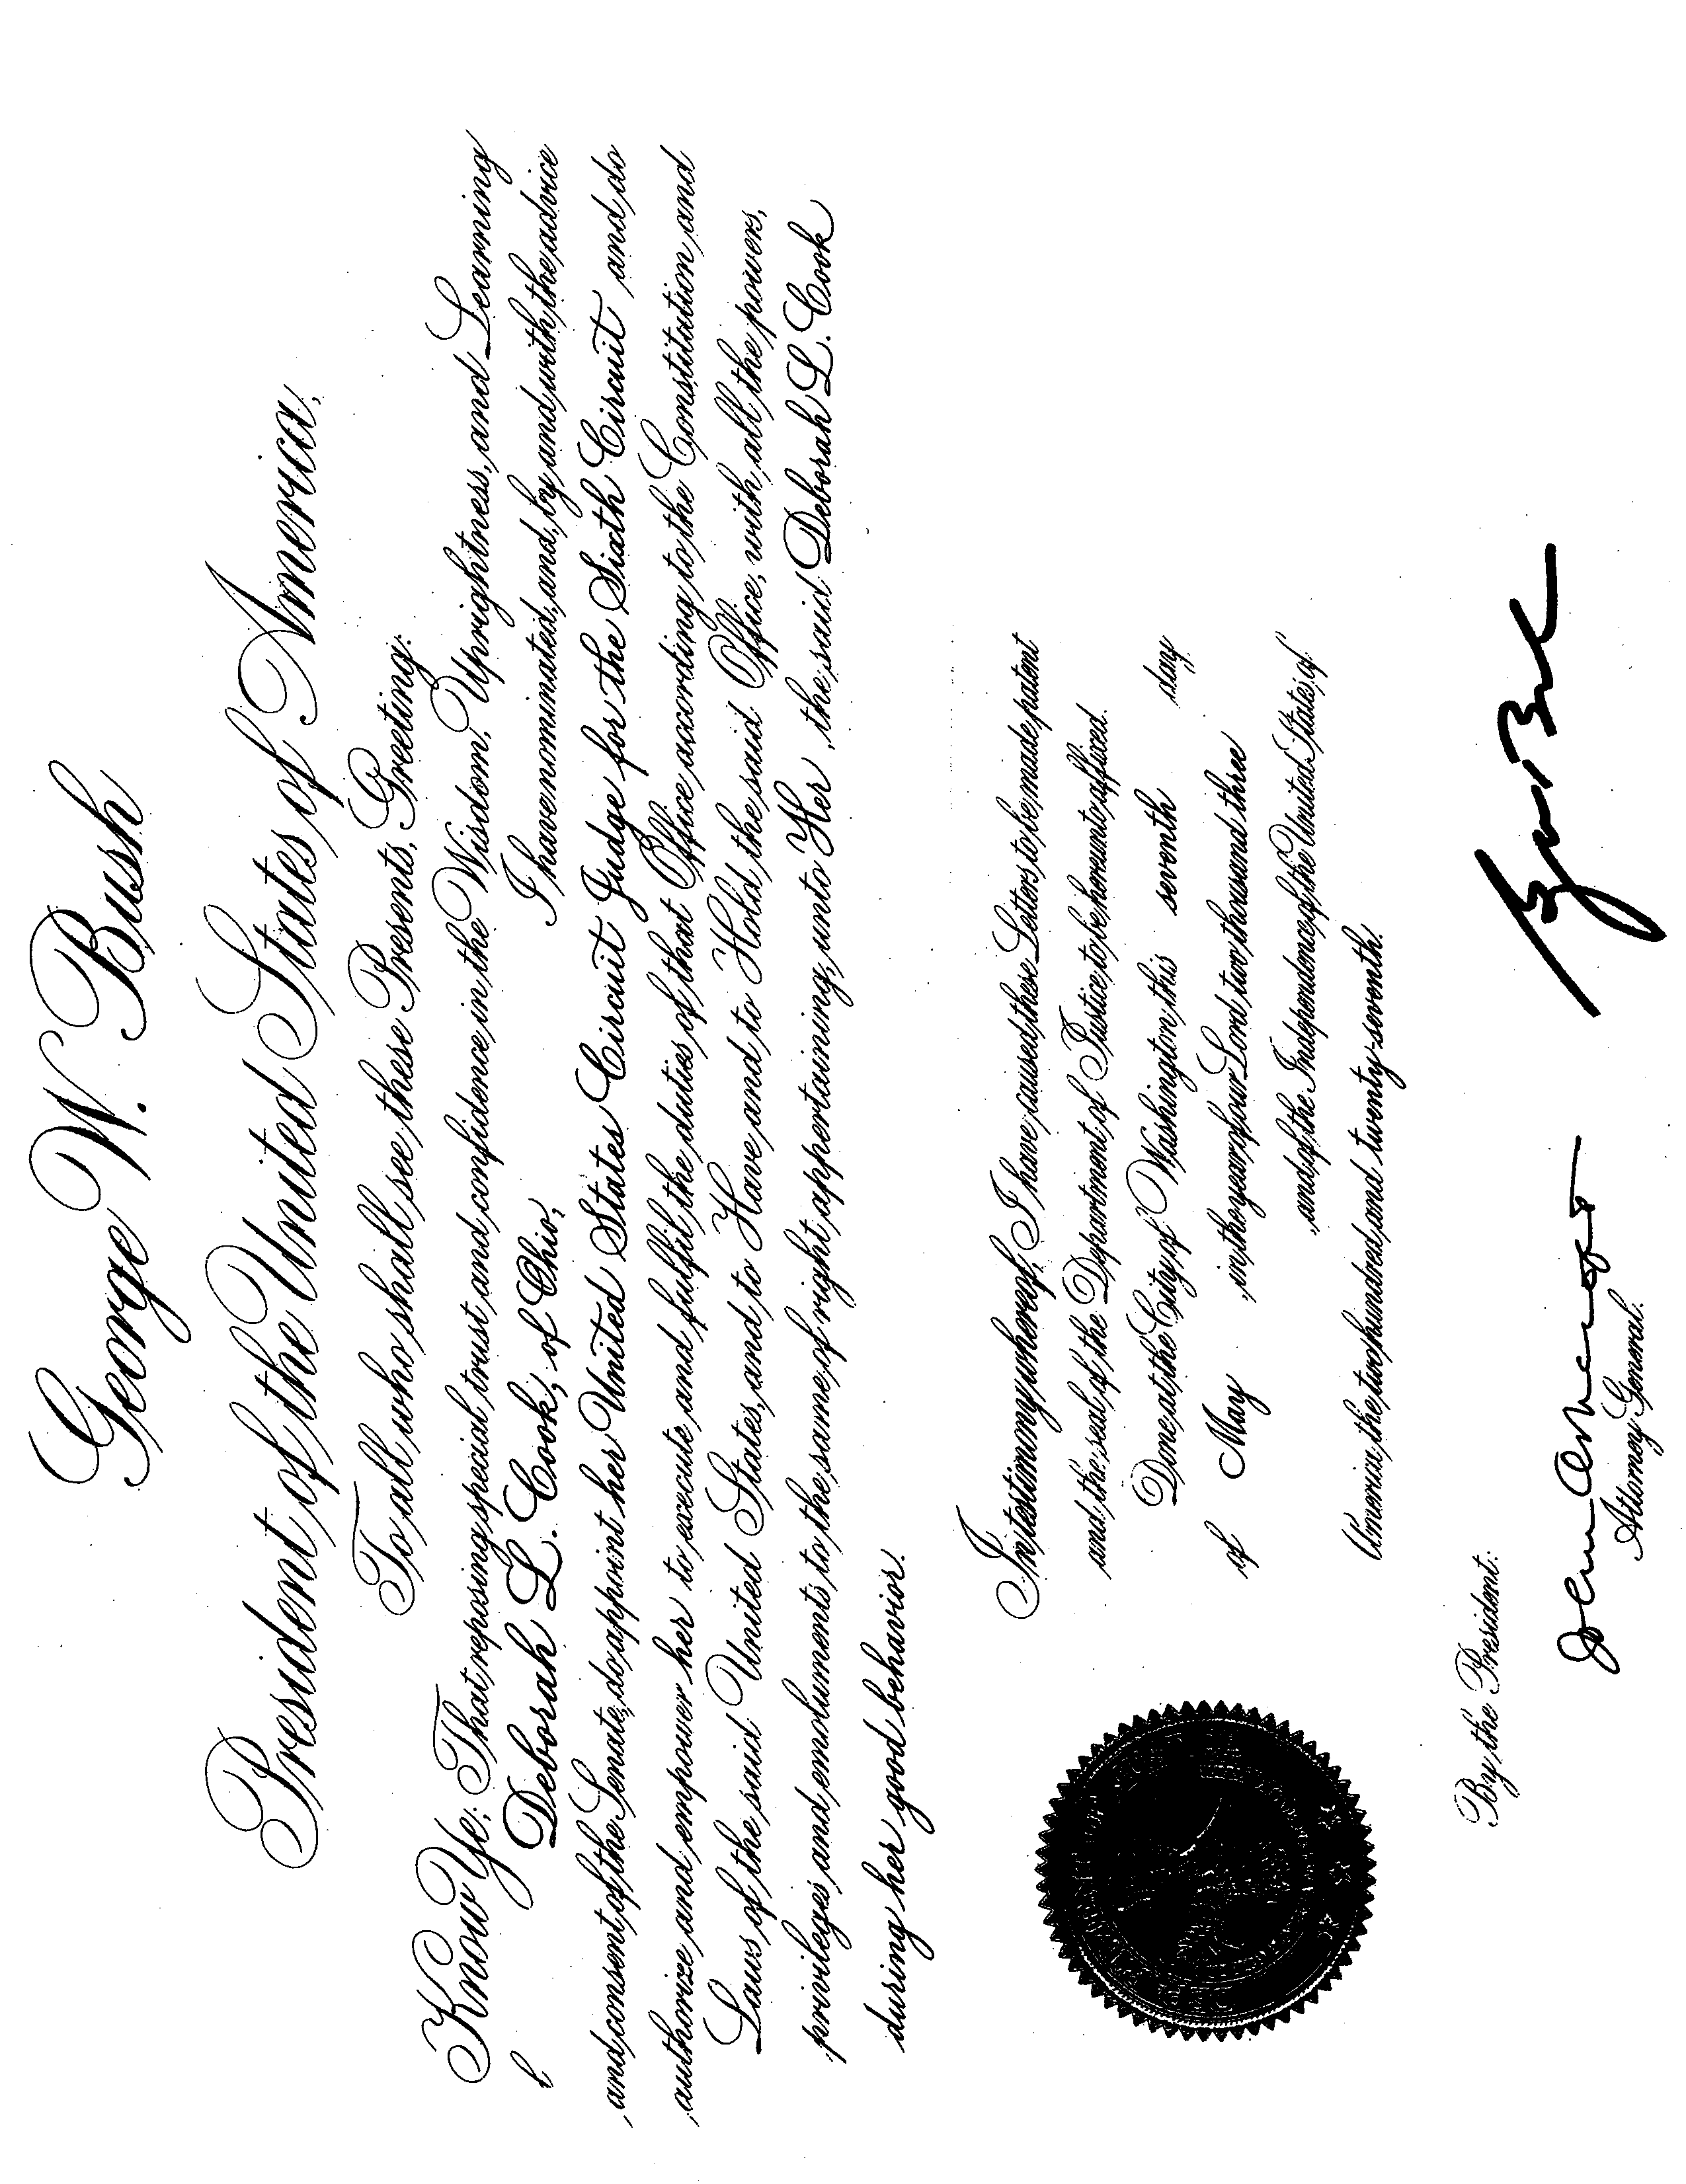 George W. Bush
President of the United States of America,
To all who shall see these Presents, Greeting:
Know Ye; That reposing special trust and confidence in the Wisdom, Uprightness, and Learning
of Deborah L. Cook, of Ohio, I have nominated, and, by and with the advice
and consent of the Senate, do appoint her United States Circuit Judge for the Sixth Circuit and do
authorize and empower her to execute and fulfil the duties of that Office according to the Constitution and
Laws of the said United States, and to Have and to Hold the said Office, with all the powers,
privileges and emoluments to the same of right appertaining, unto Her, the said Deborah L. Cook
during her good behavior.
In testimony whereof, I have caused these Letters to be made patent
and the seal of the Department of Justice to be hereunto affixed.
Done at the City of Washington this seventh day
of May in the year of our Lord two thousand three
and of the Independence of the United States of
America the two hundred and twenty-seventh.
By the President:
Attorney General.